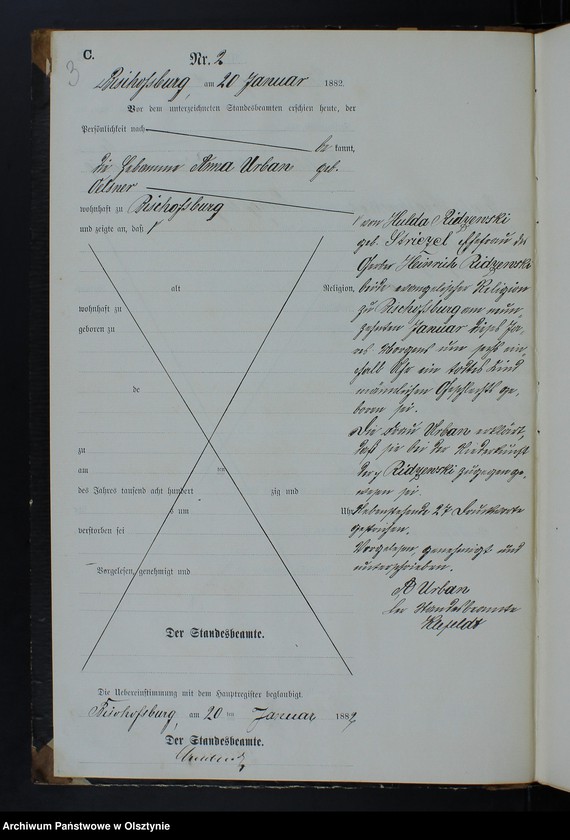 C.
3
Nr. 2
Bischofsburg, am 20 Januar 1882.
Vor dem unterzeichneten Standesbeamten erschien heute, der
Persönlichkeit nach
be kannt,
die Hebamme Anna Urban geb.
Oelsner
wohnhaft zu Bischofsburg
und zeigte an, daß
von Hulda Ridzewski
geb. Ehefrau des
Heinrich Ridzewski
beide evangelischer Religion
zu Bischofsburg am neun-
zehnten Januar dieses Jah-
res Morgens um sechs ein
halb Uhr ein todtes Kind
männlichen Geschlechts ge-
boren sei.
Die Frau Urban erklärt,
daß sie bei der Niederkunft
der Ridzewski zugegen ge-
wesen sei.
Nebenstehende 27 Druckworte
gestrichen.
Vorgelesen, genehmigt und
unterschrieben.
A Urban
Der Standesbeamte
alt Religion,
wohnhaft zu
geboren zu
de
zu
am ten
des Jahres tausend acht hundert zig und
um Uhr
verstorben sei
Vorgelesen, genehmigt und
Der Standesbeamte.
Die Uebereinstimmung mit dem Hauptregister beglaubigt.
Bischofsburg, am 20 ten Januar 1882
Der Standesbeamte.
Archiwum Państwowe w Olsztynie